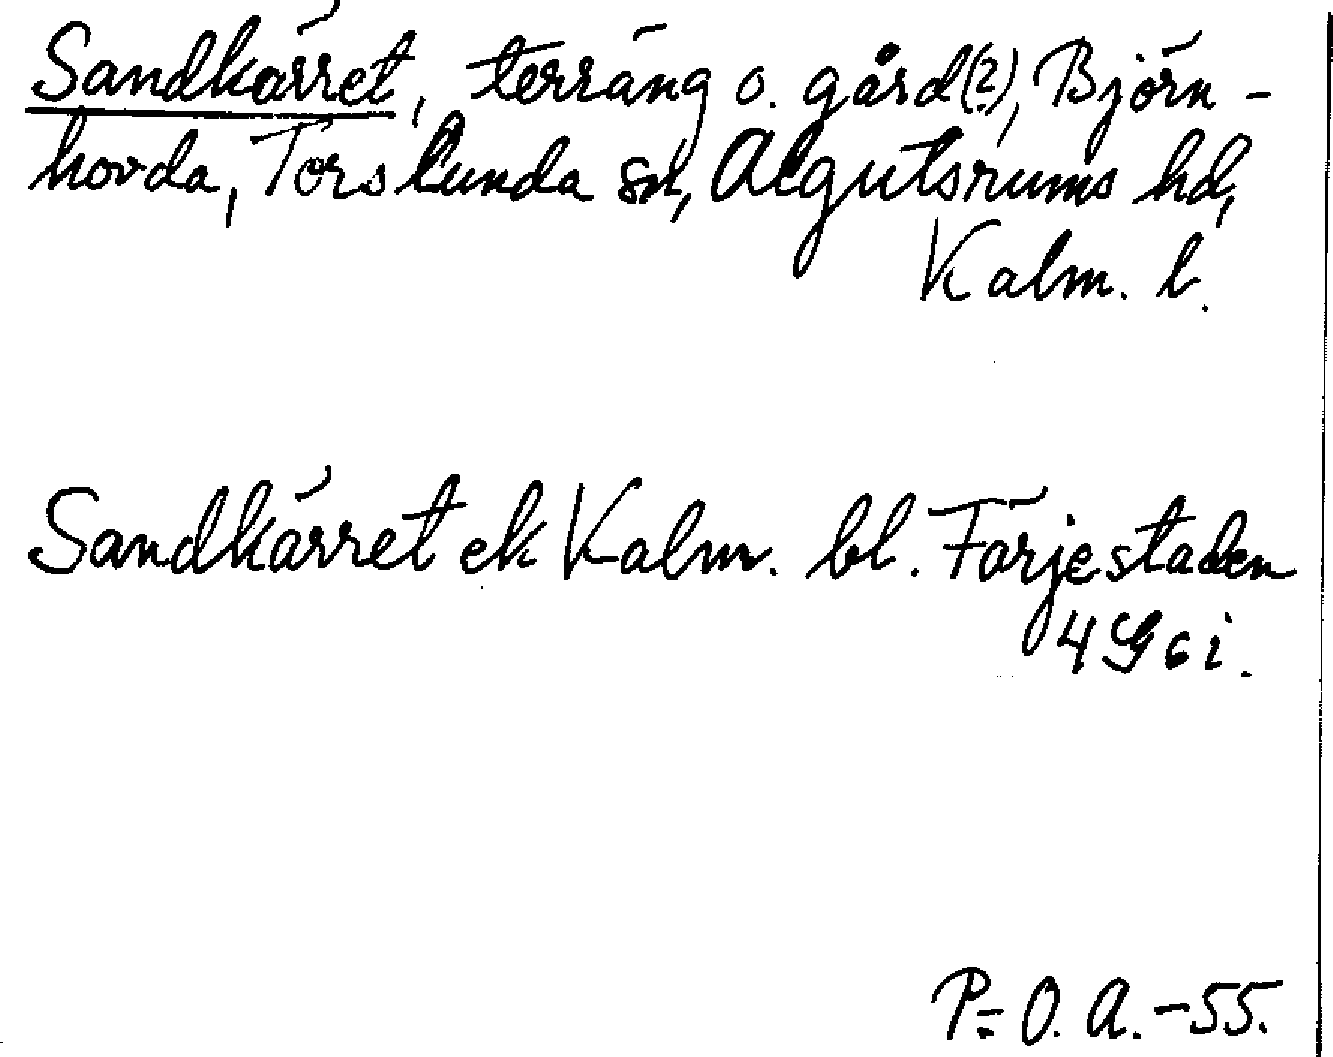 Sandkärret, terräng o. gård(?), Björn-
hovda, Torslunda sn, Algutsrums hd,
Kalm. l.
Sandkärret ek Kalm. bl. Färjestaden
4G6i.
P=O. A.-55.